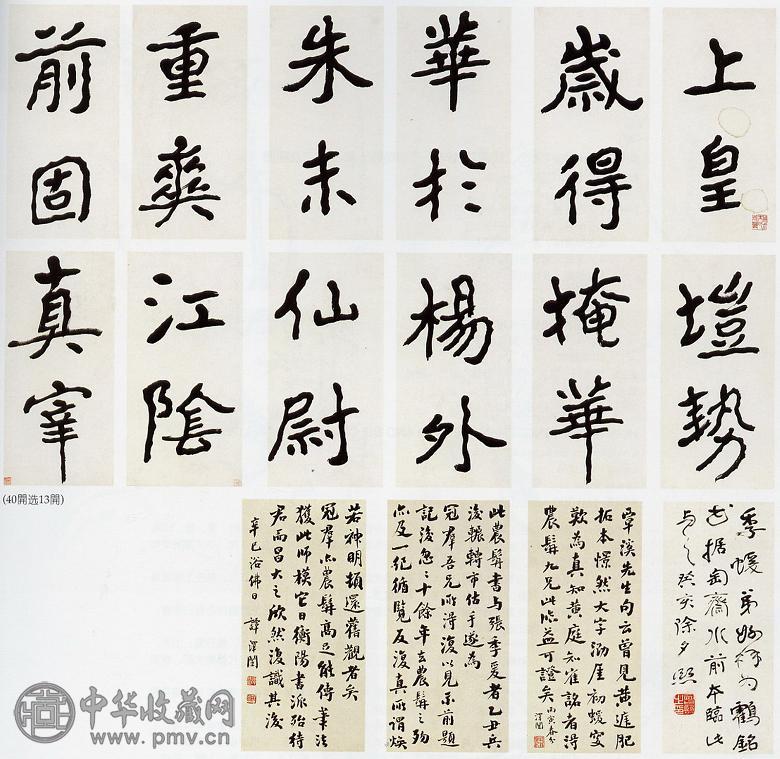 上皇
歲得
華於
朱未
重爽
前固
塏勢
掩華
楊外
仙尉
江陰
真宰
(40開选13開)
季蝯弟鶴銘
據匋齋水前本臨此
与之癸亥除夕熙
覃溪先生句云曾見黃涯肥
拓本憬然大字厓初蝯叟
歎為真知黃庭知雀銘者得
農髯九兄此臨益可證矣丙寅春分
澤闓
此農髯書与張季爰者乙丑兵
後輾轉市估手遂為
冠羣吾兄所得復以見示前題
記後忽忽十餘年去農髯之殁
亦及一紀循覽反復真所謂煥
若神明頓還舊觀者矣
冠羣亦農髯高足能傳筆法
獲此師模它日衡陽書派殆待
君而昌大之欣然復識其後
辛巳浴佛日 譚澤闓
中华收藏网
www.pmv.cn